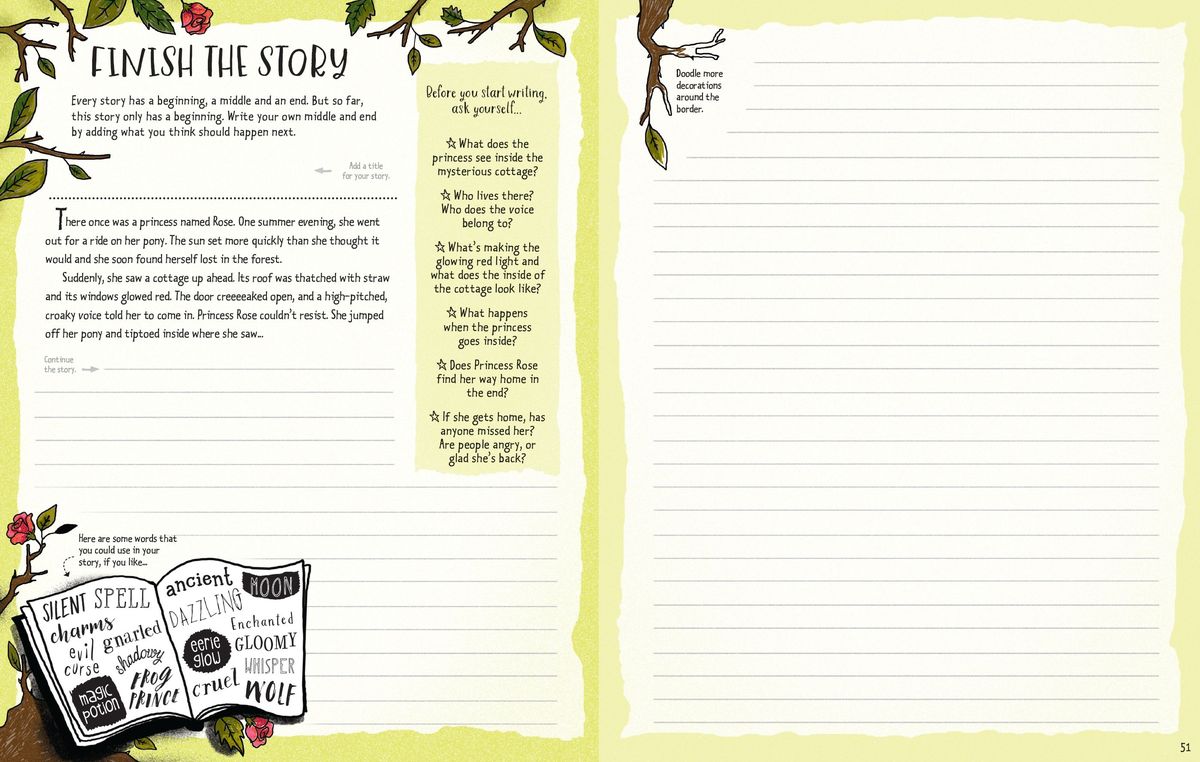 FINISH THE STORY
Every story has a beginning, a middle and an end. But so far,
this story only has a beginning. Write your own middle and end
by adding what you think should happen next.
Add a title
for your story.
There once was a princess named Rose. One summer evening, she went
out for a ride on her pony. The sun set more quickly than she thought it
would and she soon found herself lost in the forest.
Suddenly, she saw a cottage up ahead. Its roof was thatched with straw
and its windows glowed red. The door creeeeaked open, and a high-pitched,
croaky voice told her to come in. Princess Rose couldn't resist. She jumped
off her pony and tiptoed inside where she saw...
Continue
the story.
Before you start writing,
ask yourself...
What does the
princess see inside the
mysterious cottage?
Who lives there?
Who does the voice
belong to?
What's making the
glowing red light and
what does the inside of
the cottage look like?
What happens
when the princess
goes inside?
Does Princess Rose
find her way home in
the end?
If she gets home, has
anyone missed her?
Are people angry, or
glad she's back?
Here are some words that
you could use in your
story, if you like...
SILENT SPELL
charms
evil gnarled
curse shadowy
magic
potion
FROG
PRINCE
ancient MOON
DAZZLING
Enchanted
eerie
glow
GLOOMY
WHISPER
cruel WOLF
Doodle more
decorations
around the
border.
51